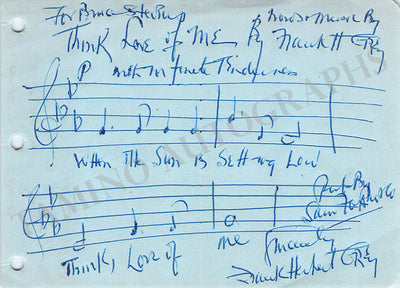 For Bruce
Words & Music By
Think Love of Me By Frank H Grey
P with Infinite Tenderness
When The Sun is Setting Low
Pub By
Sam Fox Pub Co
Think, Love of me
Sincerely
Frank Herbert Grey
TAMINO AUTOGRAPHS